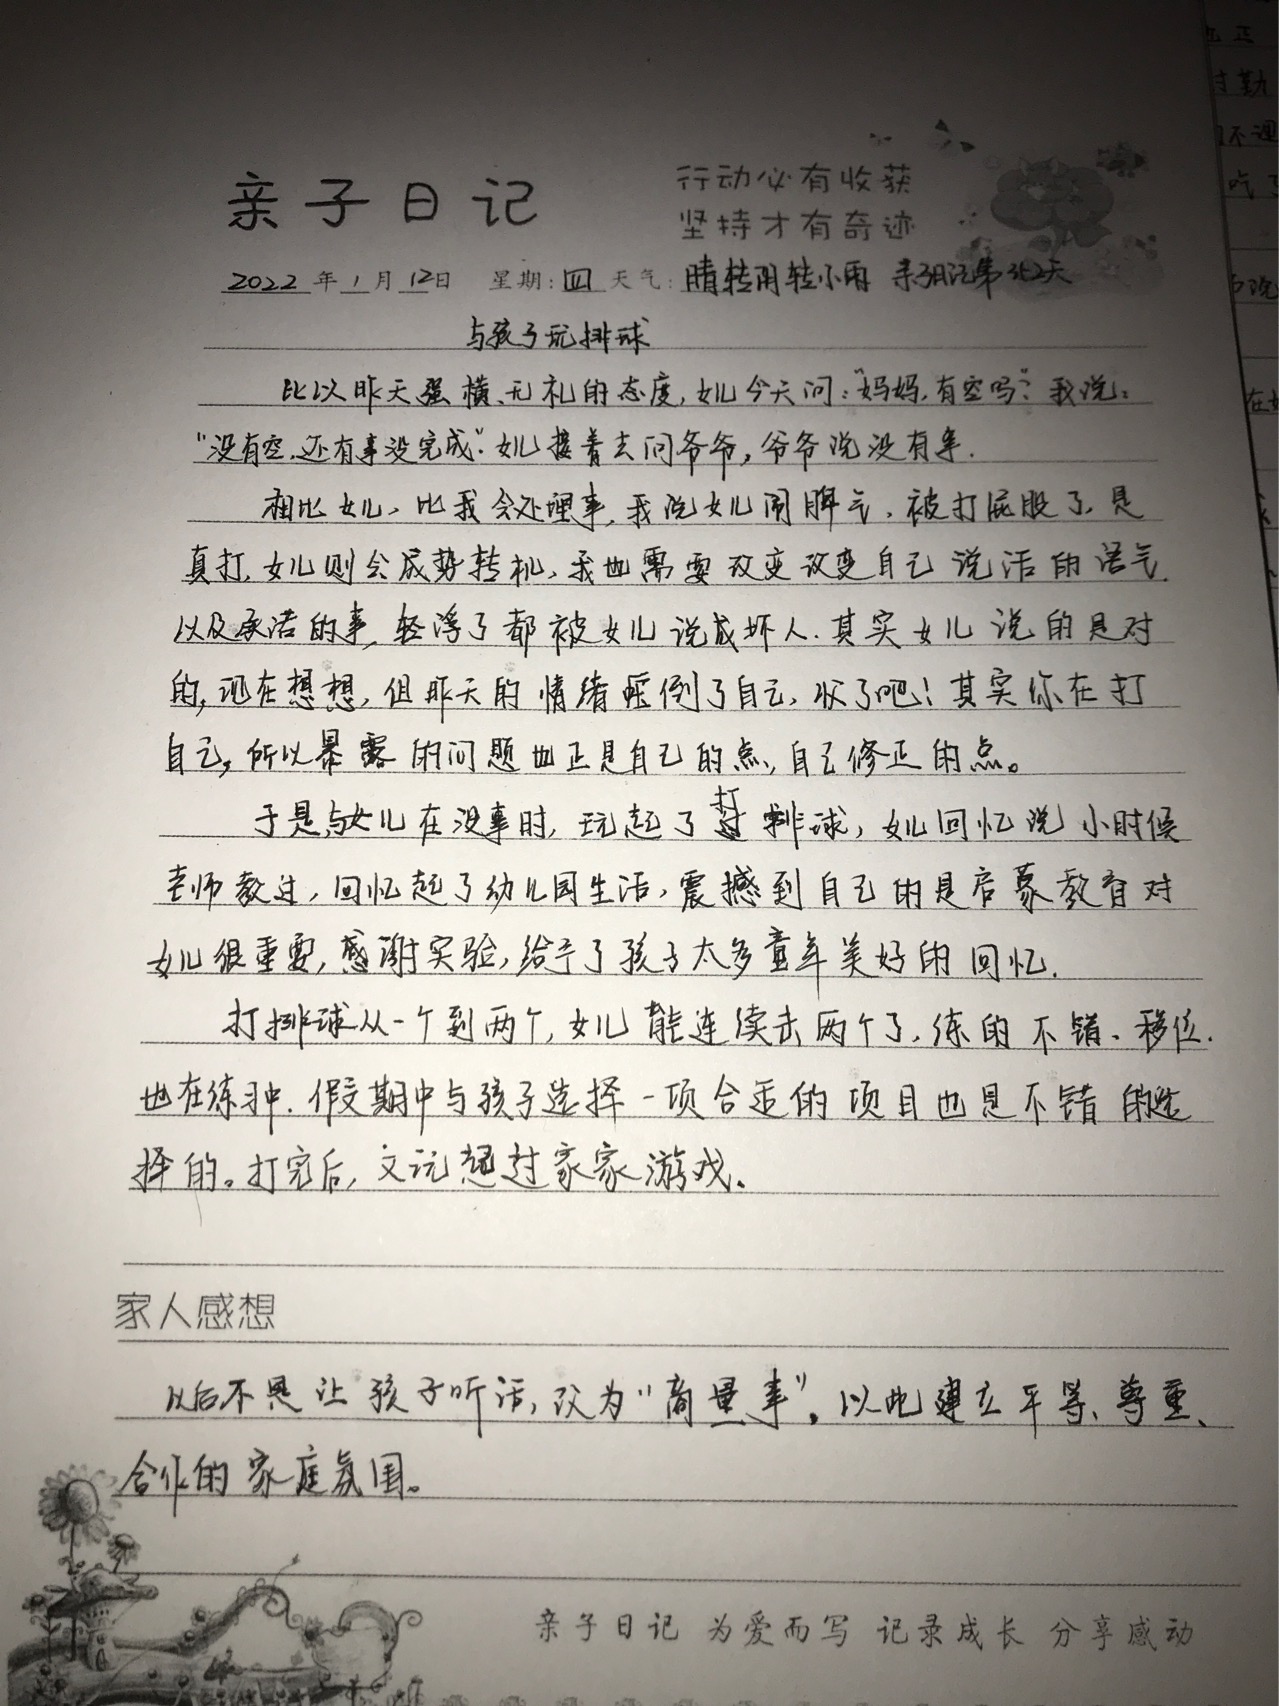 亲子日记
行动必有收获
坚持才有奇迹
2022年1月12日 星期:四 天气: 晴转阴转小雨 亲子日记第312天
与孩子玩排球
比以昨天强横、无礼的态度,女儿今天问:“妈妈,有空吗?”我说:
“没有空,还有事没完成”.女儿接着去问爷爷,爷爷说没有事.
相比女儿、比我会处理事,我说女儿闹脾气,被打屁股了,是
真打,女儿则会成势转机,我也需要改变改变自己说活的语气.
以及承诺的事,轻浮了都被女儿说成坏人.其实女儿说的是对
的,现在想想,但昨天的情绪 倒了自己, 了吧!其实你在打
自己,所以暴露的问题也正是自己的点,自己修正的点。
于是与女儿在没事时,玩起了打排球,女儿回忆说小时候
老师教过,回忆起了幼儿园生活,震撼到自己的是启蒙教育对
女儿很重要,感谢实验,给予了孩子太多童年美好的回忆.
打排球从一个到两个,女儿能连续击两个了,练的不错、移位.
也在练习中.假期中与孩子选择一项合适的项目也是不错的选
择的。打完后,又玩起过家家游戏、
家人感想
以后不是让孩子听话,改为“商量事”,以此建立平等、尊重、
合作的家庭氛围。
亲子日记 为爱而写 记录成长 分享感动